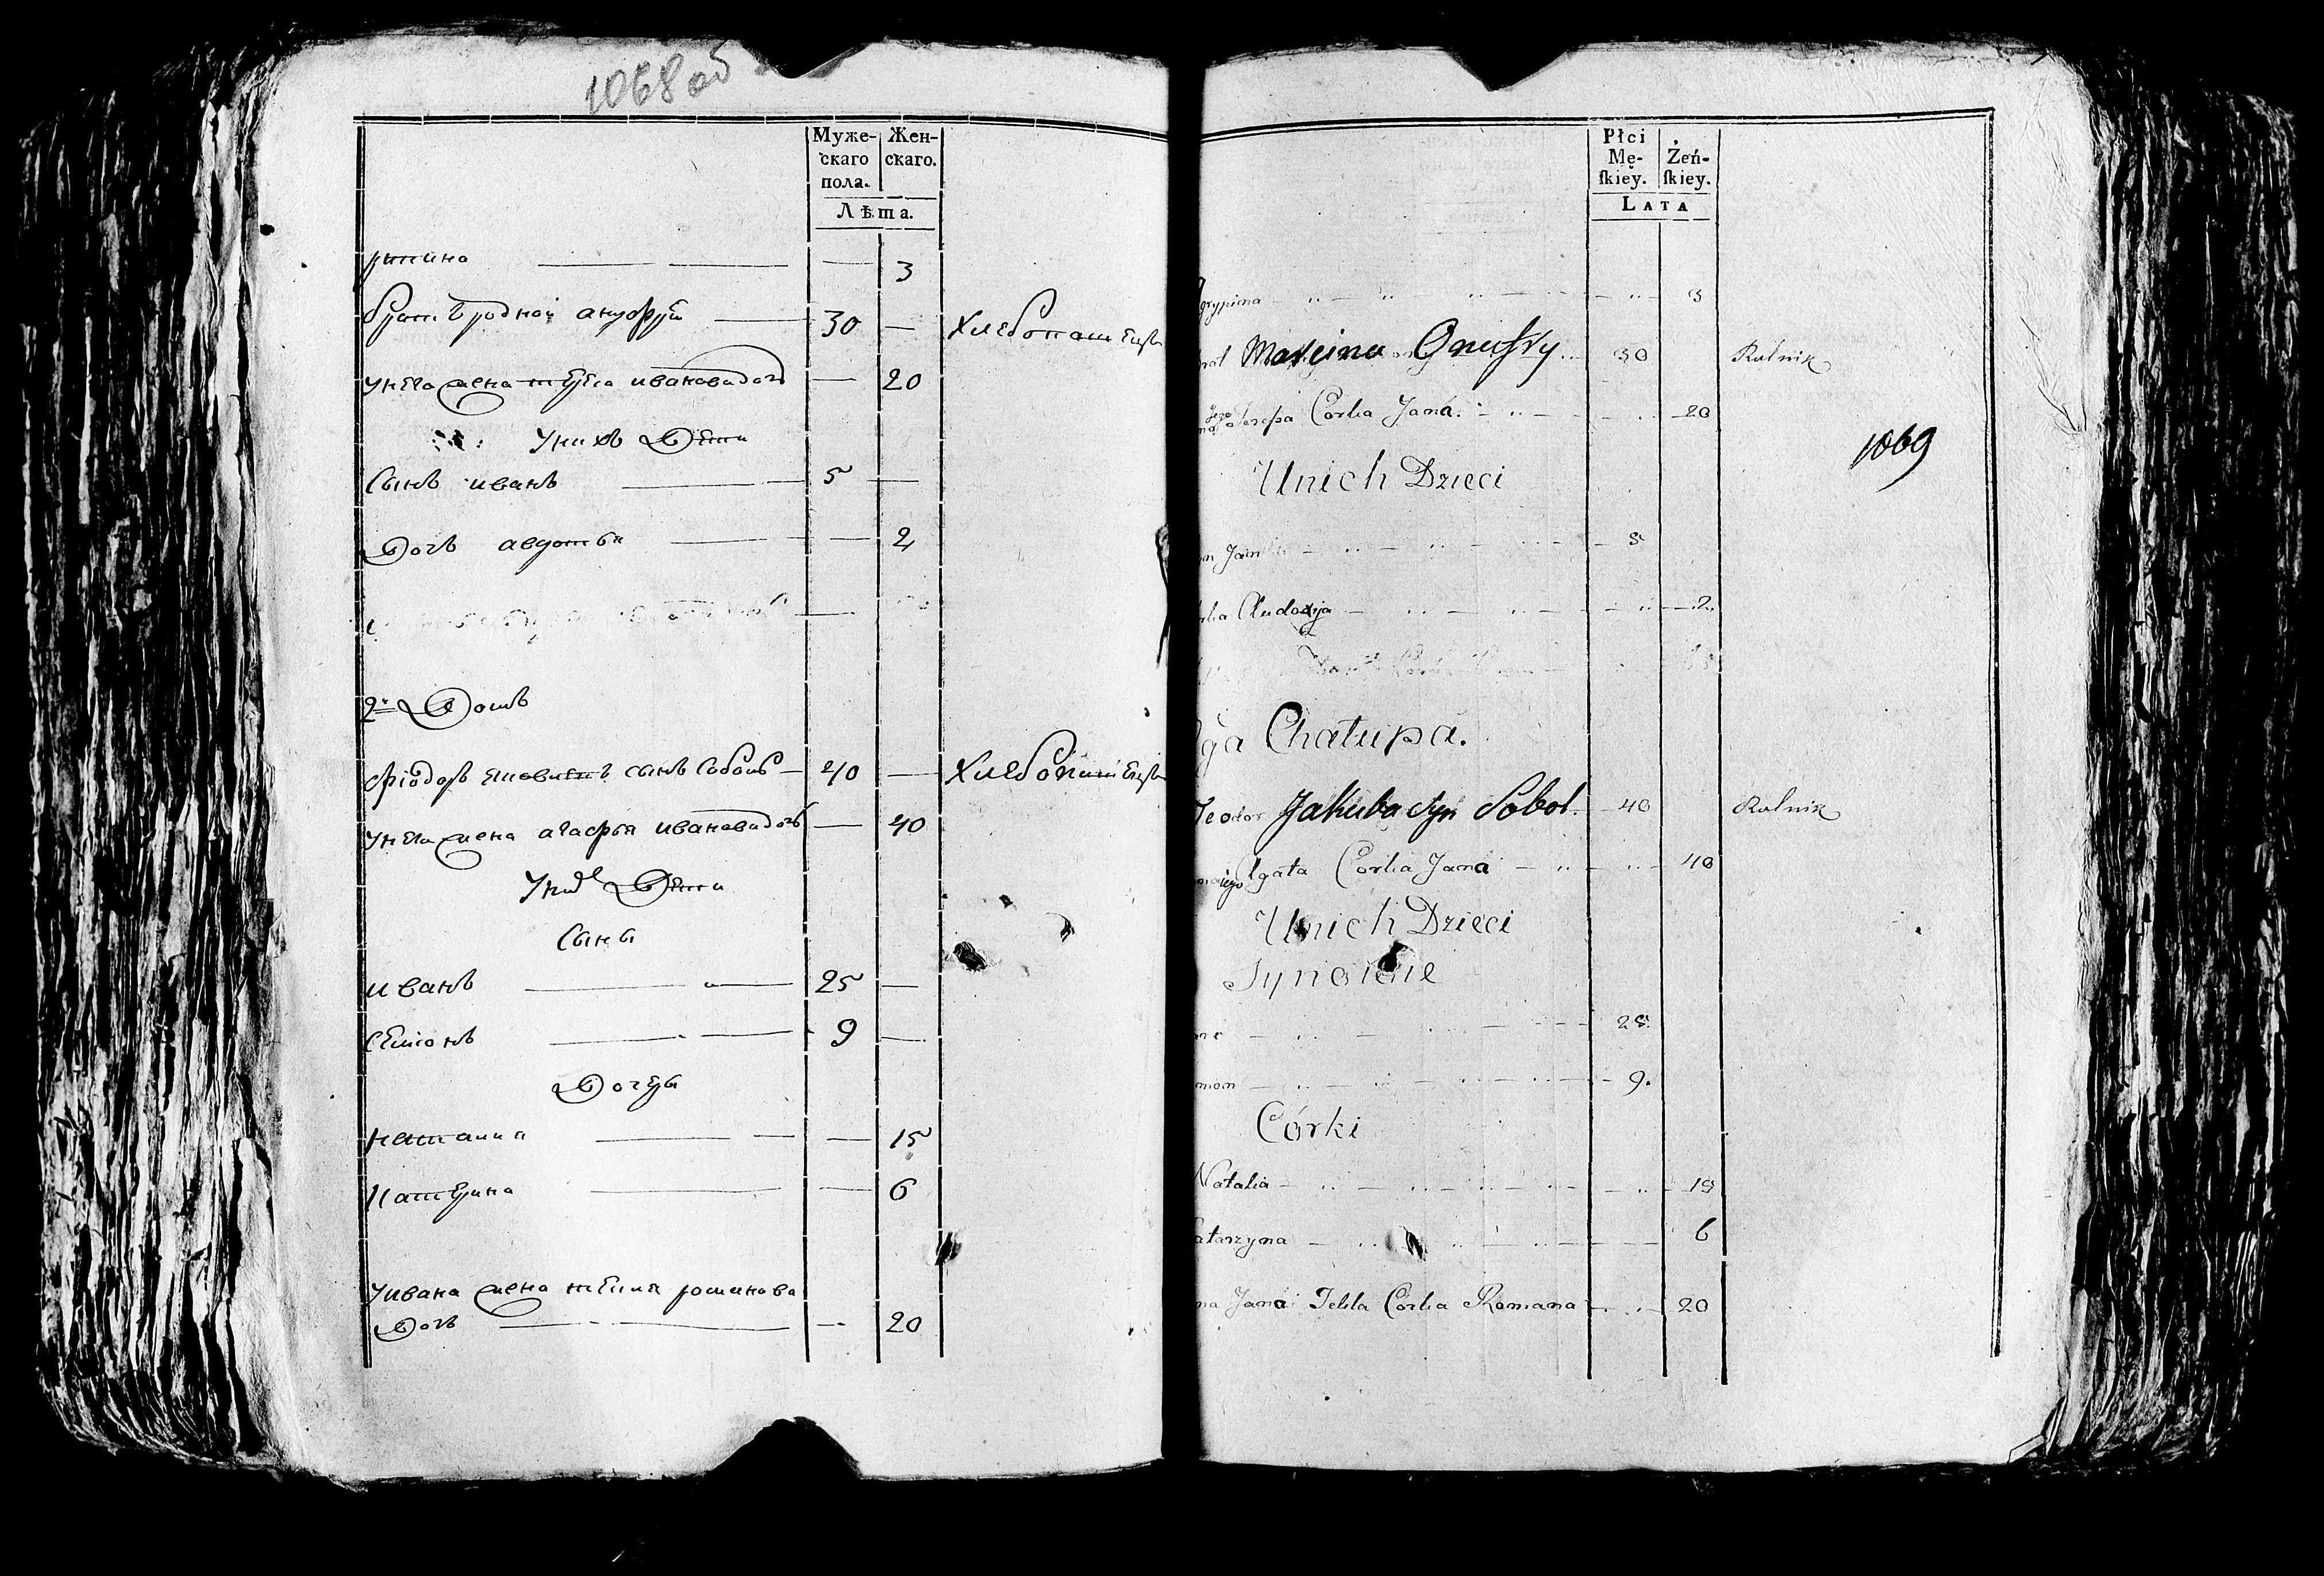 1068 об
Муже-
скаго
пола.
Жен-
скаго.
Лѣта.
3
братъ родной ануфрей 30 — Хлебопашец
унего жена тереса ивановадочь — 20
унихъ Дети
Сынъ иванъ 5 —
Дочь авдотья — 2
2й Домъ
Фіодоръ яковлевъ сынъ Соболь 40 — Хлебопашец
унего жена агафья ивановадочь — 40
унихъ Дети
Сыны
иванъ 25 —
Семіонъ 9 —
Дочеры
наталия — 15
катерина — 6
уивана жена текля романова
Дочь — 20
Płci
Mę-
ſkiey.
Żeń-
ſkiey.
LATA
grypina 3
Maxima Onufry 30 Rolnik
Jego Teresa Corka Jana 20
1069
Unich Dzieci
Jan 5
Audoxija 2
Chałupa.
Teodor Jakuba Syn Sobol 40 Rolnik
Agata Corka Jana 40
Unich Dzieci
Synowie
25
9.
Córki
Natalia 15
atarzyna 6
na Jana Tekla Corka Romana 20